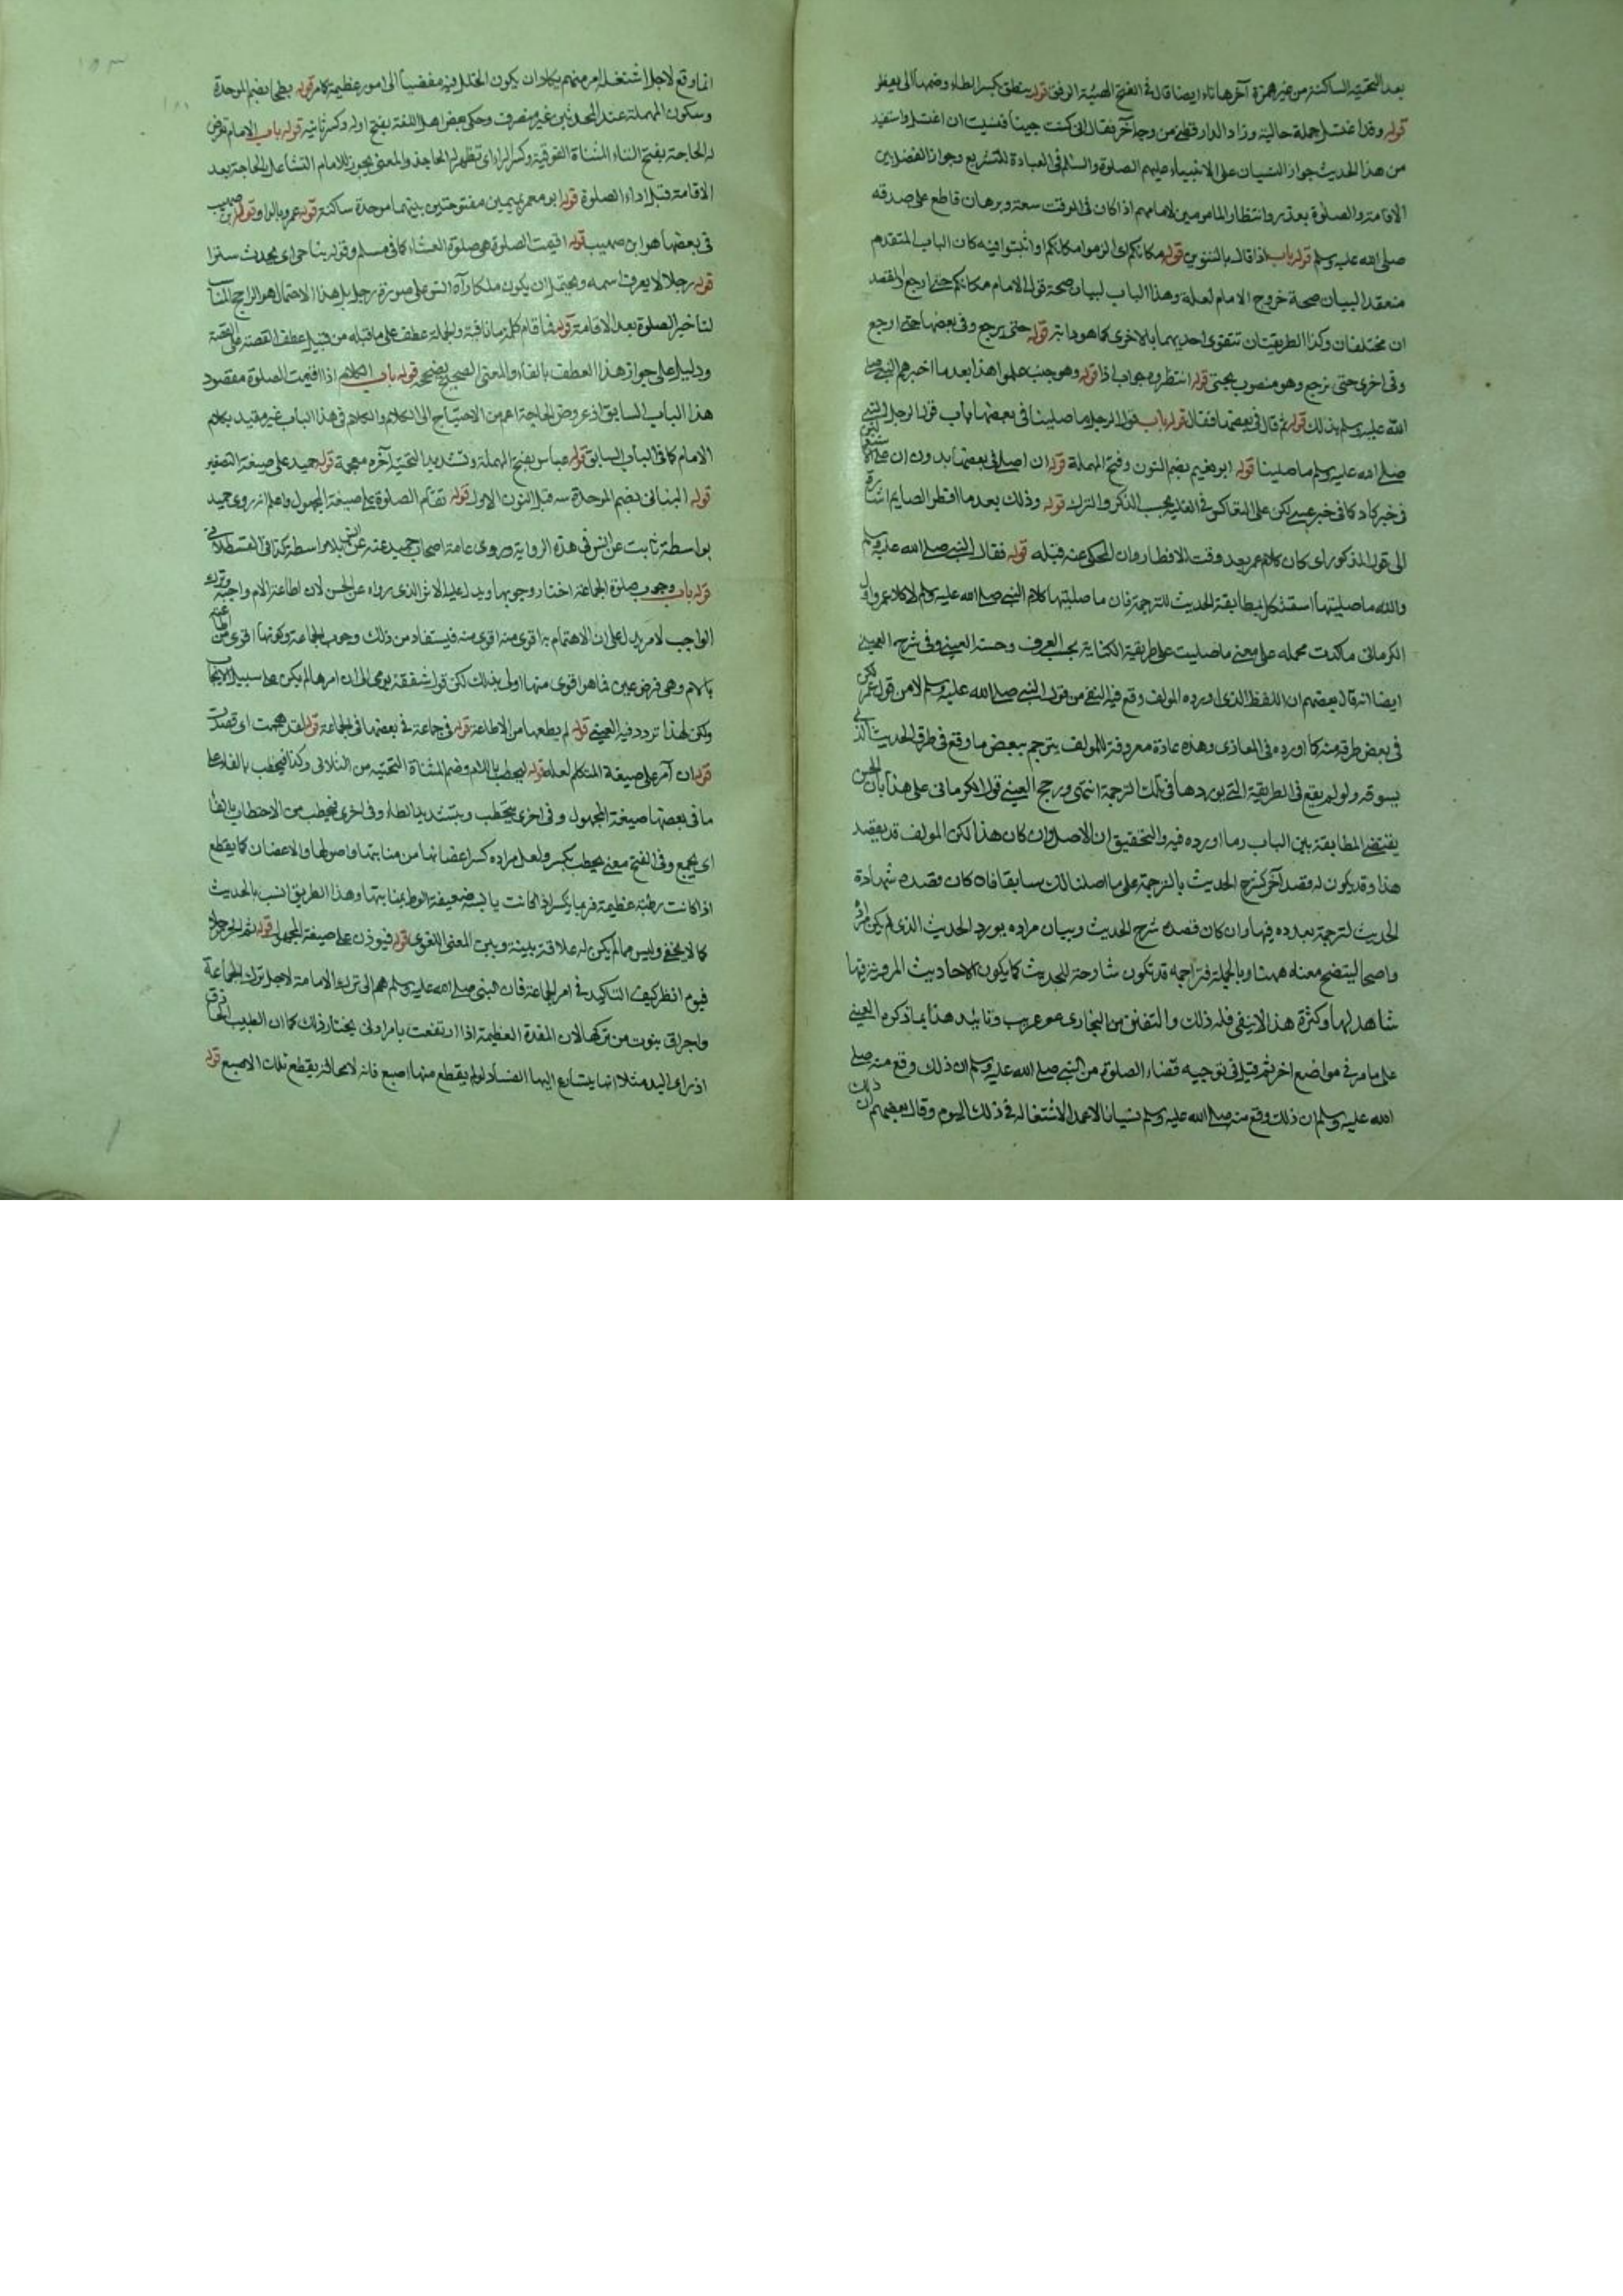 بعد التحتية الساكنة من غير همزة آخرها تاء ايضا قاله في الفتح الهيئة الرفق قوله ينطق بكسر الطاء وضمها الى يعطر
قوله وقد اغتسل جملة حالية وزاد الدارقطني من وجه آخر فقال اني كنت جنبا فنسيت ان اغتسل واستفيد
من هذا الحديث جواز النسيان على الانبياء عليهم الصلوة والسلام في العبادة للتشريع وجواز الفصل بين
الاقامة والصلوة بعذر وانتظار المامومين لامامهم اذا كان في الوقت سعة وبرهان قاطع على صدقه
صلى الله عليه وسلم قوله باب اذا قال بالتنوين قوله مكانكم اى الزموا مكانكم او اثبتوا فيه كان الباب المتقدم
منعقد البيان صحة خروج الامام لعلة وهذا الباب لبيان صحة قول الامام مكانكم حتى ارجع اذ القصد
ان مختلفان وكذا الطريقتان تتقوى احديهما بالاخرى كما هو دابه قوله حتى يرجع وفي بعضها حتى ارجع
وفي اخرى حتى نرجع وهو منصوب بحتى قوله انتظروه جواب اذا قوله وهو جنب علموا هذا بعد ما اخبرهم النبي صلى
الله عليه وسلم بذلك قوله ثم قال في بعضها فقال قوله باب قول الرجل ما صلينا في بعضها باب قول الرجل للنبي
صلى الله عليه وسلم ما صلينا قوله ابو نعيم بضم النون وفتح المهملة قوله ان اصلي في بعضها بدون ان
في خبر كاد كما في خبر عسى لكن على التعاكس في الغلبة بحسب الذكر والترك قوله وذلك بعد ما افطر الصايم اشارة
الى قول المذكور اى كان كلام عمر بعد وقت الافطار وان المحكي عنه قبله قوله فقال النبي صلى الله عليه وسلم
والله ما صليتها استشكل مطابقة الحديث للترجمة فان ما صليتها كلام النبي صلى الله عليه وسلم لا كلام عمر وقول
الكرماني ما كدت محمله على معنى ما صليت على طريقة الكناية بحسب العرف وحسنه العيني وفي شرح العيني
ايضا انه قال بعضهم ان اللفظ الذى اورده المولف وقع فيه النفي من قول النبي صلى الله عليه وسلم لا من قول عمر لكن
في بعض طرقه منه كما اورده في المغازى وهذه عادة معروفة للمولف يترجم ببعض ما وقع في طرق الحديث الذي
يسوقه ولو لم يقع في الطريقة التي يوردها في تلك الترجمة انتهى ورجح العيني قول الكرماني على هذا بان
يقتضى المطابقة بين الباب وما اورده فيه والتحقيق ان الاصل وان كان هذا لكن المولف قد يقصد
هذا وقد يكون له قصد آخر كشرح الحديث بالترجمة على ما اصلنا لك سابقا فان كان قصده شهادة
الحديث لترجمة يورده فيها وان كان قصده شرح الحديث وبيان مراده يورد الحديث الذى لم يكن مراده
واضحا ليتضح معناه ههنا وبالجملة فتراجمه قد تكون شارحة للحديث كما يكون الاحاديث المروية فيها
شاهد لها وكثرة هذا لا ينفي قلة ذلك والتفنن من البخارى غير غريب وتاييد هذا بما ذكره العيني
على ما مر في مواضع اخر ثم قيل في توجيه قضاء الصلوة من النبي صلى الله عليه وسلم ان ذلك وقع منه صلى
الله عليه وسلم ان ذلك وقع منه صلى الله عليه وسلم نسيانا لا عمدا لاشتغاله في ذلك اليوم وقال بعضهم ان ذلك
انما وقع لاجل اشتغال امر منهم يكاد ان يكون الخلل فيه مفضيا الى امور عظيمة كما مر قوله بطحان بضم الموحدة
وسكون المهملة عند المحدثين غير منصرف وحكي بعض اهل اللغة بفتح اوله وكسر ثانيه قوله باب الامام تعرض
له الحاجة بفتح التاء المثناة الفوقية وكسر الراء اى تظهر له الحاجة والمعنى يجوز للامام التشاغل بالحاجة بعد
الاقامة وقبل اداء الصلوة قوله ابو معمر بميمين مفتوحتين بينهما موحدة ساكنة قوله عمرو بالواو قوله ابن صهيب
في بعضها هو ابن صهيب قوله اقيمت الصلوة هي صلوة العشاء كما في مسلم وقوله يناجي اى يحدث سترا
قوله رجلا لا يعرف اسمه ويحتمل ان يكون ملكا رآه انس على صورة رجل بل هذا الاحتمال هو الراجح المناسب
لتاخير الصلوة بعد الاقامة قوله فما قام كلمة ما نافية والجملة عطف على ما قبله من قبيل عطف القصة على القصة
ودليل على جواز هذا العطف بالفاء والمعنى الصحيح يصححه قوله باب الكلام اذا اقيمت الصلوة مقصود
هذا الباب السابق اذ عروض الحاجة اعم من الاحتياج الى الكلام والكلام في هذا الباب غير مقيد بكلام
الامام كما في الباب السابق قوله عياش بفتح المهملة وتشديد التحتية آخره معجمة قوله حميد على صيغة التصغير
قوله البناني بضم الموحدة قبل النون الاولى قوله تقام الصلوة على صيغة المجهول واعلم انه روى حميد
بواسطة ثابت عن انس في هذه الرواية وروى عامة اصحاب حميد عنه عن انس بلا واسطة كذا في القسطلاني
قوله باب وجوب صلوة الجماعة اختار وجوبها ويدل عليه الاثر الذى رواه عن الحسن لان اطاعة الام واجبة وترك
الواجب لامر يدل على ان الاهتمام به اقوى منه فيستفاد من ذلك وجوب الجماعة وكونها اقوى من طاعة
بالام وهى فرض عين فما هو اقوى منها اولى بذلك لكن قوله شفقة يومى الى ان امرها لم يكن على سبيل الايجاب
ولكن لهذا تردد فيه العيني قوله لم يطعها من الاطاعة قوله في جماعة في بعضها في الجماعة قوله لقد هممت اى قصدت
قوله ان آمر على صيغة المتكلم لعله قوله ليحطب باللام وضم المثناة التحتية من الثلاثي وكذا فيحطب بالفاء على
ما في بعضها صيغة المجهول وفي اخرى يتحطب وبتشديد الطاء وفي اخرى فيحتطب من الاحتطاب بالفاء
اى يجمع وفي الفتح معنى يحطب يكسر ولعل مراده كسر اغصانها من منابتها واصولها والاغصان كما يقطع
اذا كانت رطبة عظيمة فربما يكسر اذا كانت يابسة ضعيفة الربط بمنابتها وهذا الطريق انسب بالحديث
كما لا يخفى وليس مما لم يكن له علاقة بينة وبين المعنى اللغوى قوله فيوذن على صيغة المجهول قوله ثم آمر رجلا
فيوم انظر كيف التاكيد في امر الجماعة فان النبي صلى الله عليه وسلم هم الى ترك الامامة لاجل ترك الجماعة
واحراق بيوت من تركها لان المفسدة العظيمة اذا ارتفعت بامر ادنى يختار ذلك كما ان الطبيب الحاذق
اذ راى اليد مثلا انها يتسارع اليها الفساد لو لم يقطع منها اصبع فانه لا محالة يقطع تلك الاصبع قوله